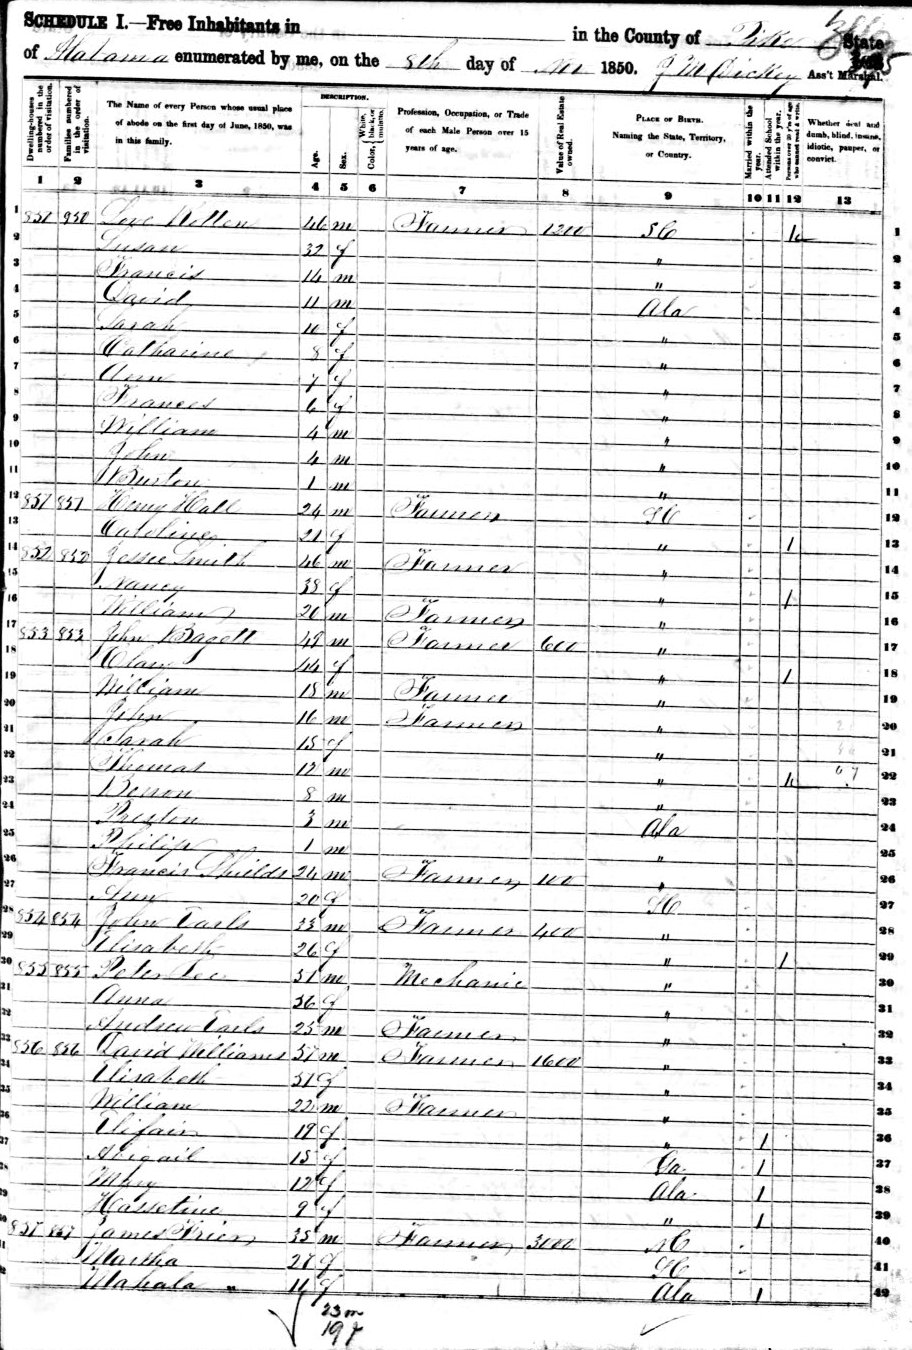 SCHEDULE I.—Free Inhabitants in in the County of Pike State
of Alabama enumerated by me, on the 8th day of Nov 1850. J M Dickey Ass't Marshal.
Dwelling-houses numbered in the order of visitation.
Families numbered in the order of visitation.
The Name of every Person whose usual place of abode on the first day of June, 1850, was in this family.
DESCRIPTION.
Age.
Sex.
Color, White, black, or mulatto.
Profession, Occupation, or Trade of each Male Person over 15 years of age.
Value of Real Estate owned.
PLACE OF BIRTH. Naming the State, Territory, or Country.
Married within the year.
Attended School within the year.
Persons over 20 y'rs of age who cannot read & write.
Whether deaf and dumb, blind, insane, idiotic, pauper, or convict.
1 2 3 4 5 6 7 8 9 10 11 12 13
1 46 m Farmer 1200 SC 1
2 Susan 32 f " 2
3 Francis 14 m " 3
4 David 11 m Ala 4
5 Sarah 10 f " 5
6 Catharine 8 f " 6
7 Ann 7 f " 7
8 Frances 6 f " 8
9 William 4 m " 9
10 John 4 m " 10
11 Burton 1 m " 11
12 851 851 Henry Hall 24 m Farmer SC 12
13 Caroline 21 f " 1 13
14 852 852 Jessee Smith 46 m Farmer " 14
15 Nancy 38 f " 1 15
16 William 20 m Farmer " 16
17 853 853 John Bagett 48 m Farmer 600 " 17
18 44 f " 1 18
19 William 18 m Farmer " 19
20 John 16 m Farmer " 20
21 Sarah 15 f " 21
22 Thomas 12 m " 22
23 8 m " 23
24 Preston 3 m Ala 24
25 Philip 1 m " 25
26 Francis Shields 24 m Farmer 100 " 26
27 Ann 20 f SC 27
28 854 854 John Earls 33 m Farmer 400 " 28
29 Elisabeth 26 f " 1 29
30 855 855 Peter Lee 51 m Mechanic " 30
31 Anna 56 f " 31
32 Andrew Earls 25 m Farmer " 32
33 856 856 David Williams 57 m Farmer 1600 " 33
34 Elisabeth 51 f " 34
35 William 22 m Farmer " 35
36 19 f " 1 36
37 Abigail 15 f Ga 1 37
38 Mary 12 f Ala 1 38
39 Hassetine 9 f " 1 39
40 857 857 James 35 m Farmer 3000 NC 40
41 Martha 27 f SC 41
42 Mahala " 11 f Ala 1 42
23 m
19 f